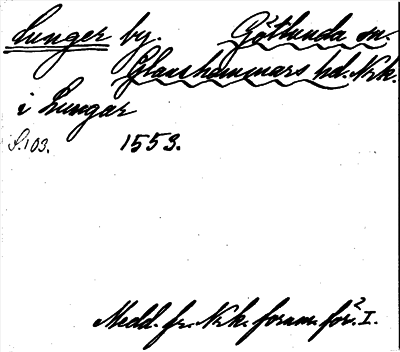 Lunger by. Götlunda sn.
Glanshammars hd. Nrk.
i Lungar
S. 103. 1553.
Medd. fr. Nrk. fornm. för.² I.